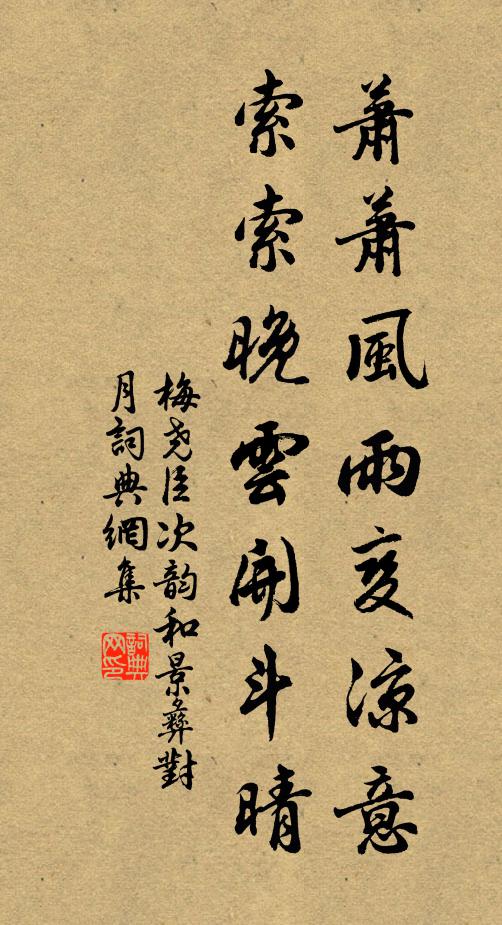 蕭蕭風雨变涼意
索索晚雲開斗晴
梅尧臣次韵和景彝對
月詞典網集
詞典网印